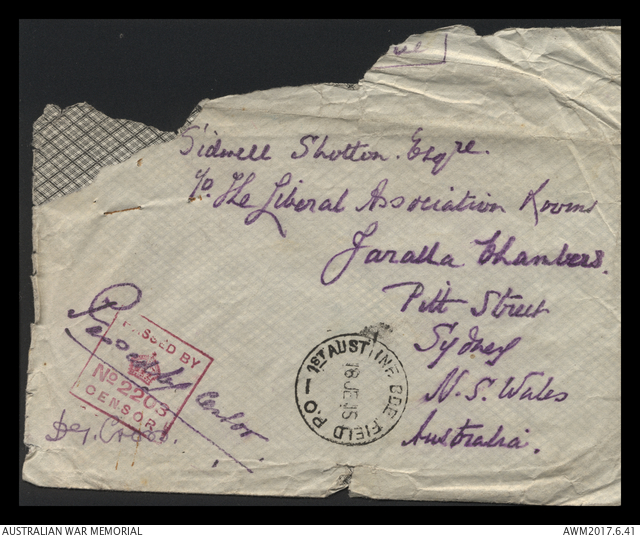 Sidwell Shotton. Esqre.
c/o. The Liberal Association Rooms
Jaralla Chambers.
Pitt Street
Sydney
N. S. Wales
Australia.
Passed by Censor
PASSED BY
No 2203
CENSOR
1ST AUST INF BDE FIELD P.O
18 JE 15
AUSTRALIAN WAR MEMORIAL
AWM2017.6.41